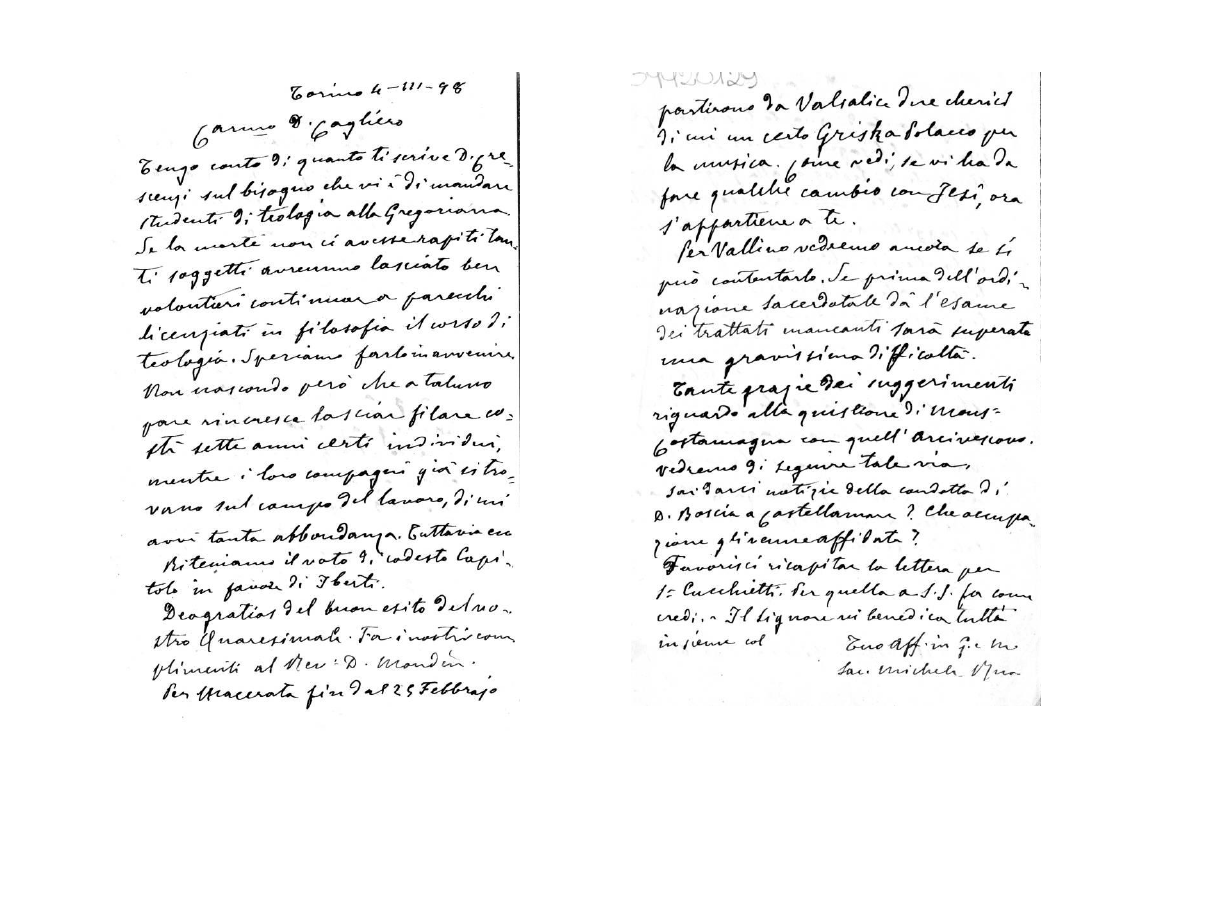 Torino 4-III-98
Carmo D. Cagliero
Tengo conto di quanto ti scrive D. Cre-
scenzi sul bisogno che vi è di mandare
studenti di teologia alla Gregoriana
Se la morte non ci avesse rapiti tan-
ti soggetti avremmo lasciato ben
volontieri continuar a parecchi
licenziati in filosofia il corso di
teologia. Speriamo farlo in avvenire
Non nascondo però che a taluno
pare rincresca lasciar filare co=
stì sette anni certi individui,
mentre i loro compagni già si tro=
vano sul campo del lavoro, di cui
avvi tanta abbondanza. Tuttavia
Riteniamo il voto di codesto Capi-
tolo in favor di Iberti.
Deogratias del buon esito del vo-
stro Quaresimale. Fa i nostri com
plimenti al Rev: D. Mondin.
Per Macerata fin dal 25 Febbrajo
partirono da Valsalice due cherici
di cui un certo Griska Polacco per
la musica. Come vedi, se vi ha da
fare qualche cambio con Jesi, ora
s'appartiene a te.
Per Vallino vedremo ancora se si
può contentarlo. Se prima dell'ordi-
nazione sacerdotale dà l'esame
dei trattati mancanti sarà superata
una gravissima difficoltà.
Tante grazie dei suggerimenti
riguardo alla quistione di Mons=
Costamagna con quell'Arcivescovo.
Vedremo di seguire tale via.
Sai darci notizie della condotta di
D. Boscia a Castellamare? Che occupa-
zione gli venne affidata?
Favorisci ricapitar la lettera per
Cucchietti. Per quella a S.S. fa come
credi. - Il Signore vi benedica tutti
insieme col Tuo Aff. in G. e M.
Sac. Michele Rua